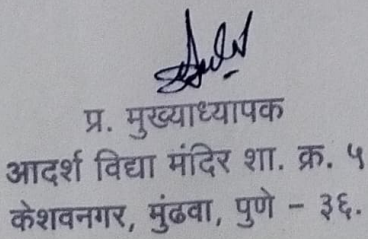 प्र. मुख्याध्यापक
आदर्श विद्या मंदिर शा. क्र. ५
केशवनगर, मुंढवा, पुणे - ३६.